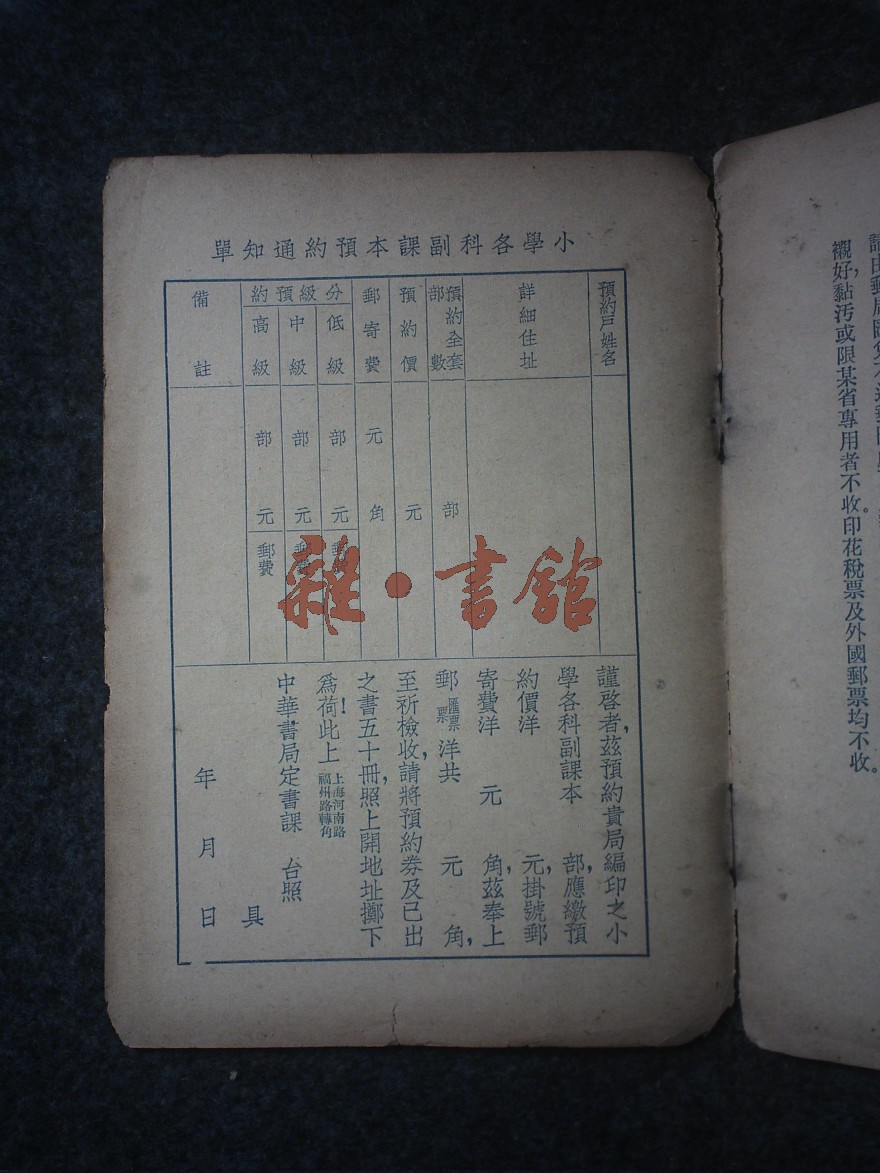 小學各科副課本預約通知單
預約戶姓名
詳細住址
預約全套部數
部
預約價
元
郵寄費
元
角
分級預約
低級
部
元
中級
部
元
高級
部
元
郵費
備註
謹啓者,茲預約貴局編印之小
學各科副課本 部,應繳預
約價洋 元,掛號郵
寄費洋 元 角,茲奉上
郵匯票票洋共 元 角,
至祈檢收,請將預約券及已出
之書五十冊,照上開地址擲下
爲荷!此上
上海河南路
福州路轉角
中華書局定書課 台照
具
年 月 日
襯好,黏汚或限某省專用者不收。印花稅票及外國郵票均不收。
雜·書館